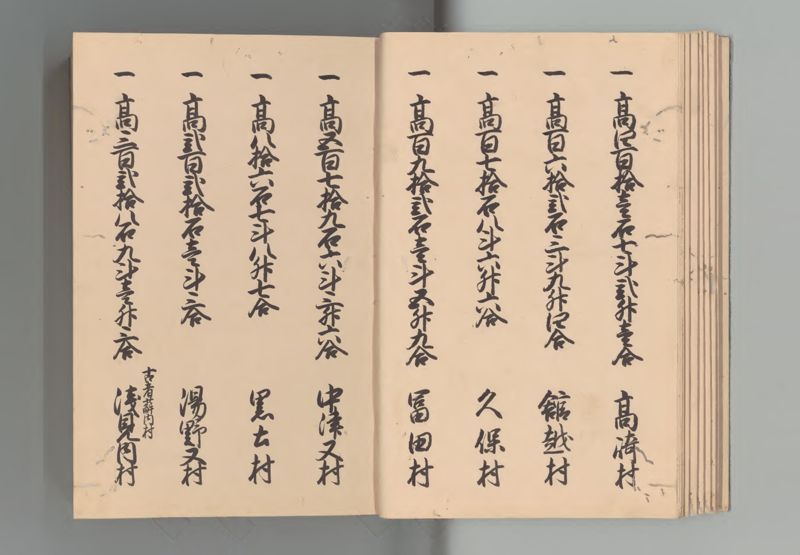 一 高四百拾壱石七斗弐升壱合 高崎村
一 高百六拾弐石三斗九升四合 舘越村
一 高百七拾石八斗六升六合 久保村
一 高百九拾弐石壱斗五升九合 冨田村
一 高五百七拾九石六斗三升六合 中津又村
一 高八拾六石七斗八升七合 黒土村
一 高弐百弐拾石壱斗三合 湯野又村
一 高三百弐拾八石九斗壱升三合 浅見内村
古者薜内村